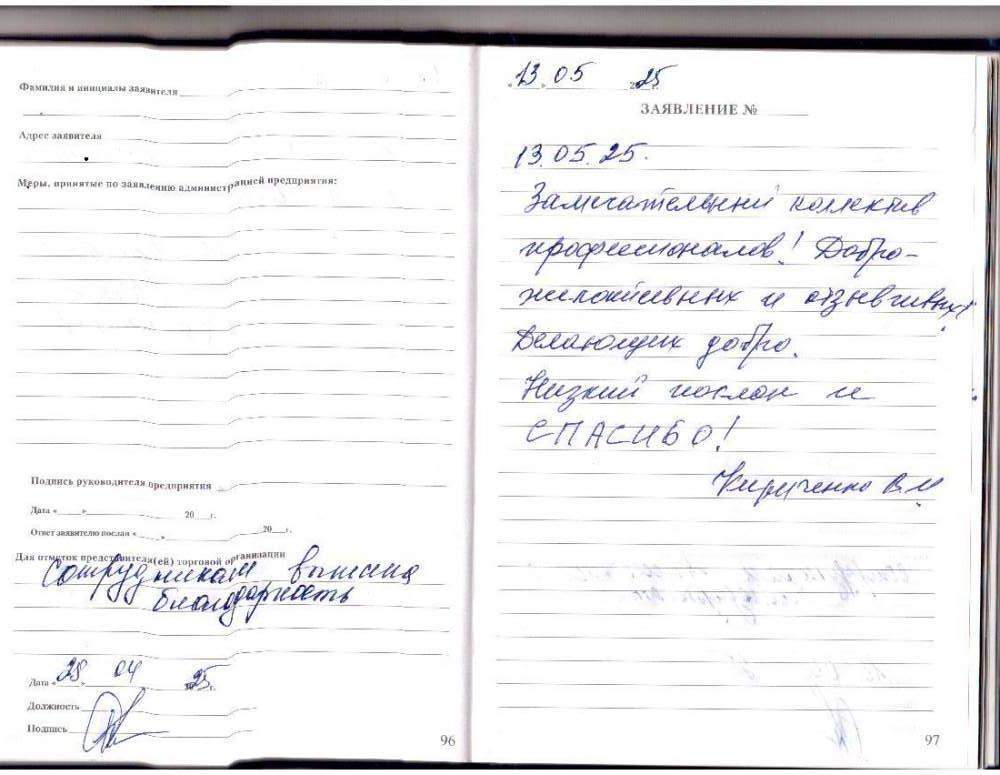 Фамилия и инициалы заявителя
Адрес заявителя
Меры, принятые по заявлению администрацией предприятия:
Подпись руководителя предприятия
Дата « » 20 г.
Ответ заявителю послан « » 20 г.
Для отметок представителя(ей) торговой организации
Сотрудникам вынесена
благодарность
Дата « 28 » 04 2025 г.
Должность
Подпись
96
« 13 » 05 2025
ЗАЯВЛЕНИЕ №
13.05.25.
Замечательный коллектив
профессионалов! Добро-
желательных и отзывчивых!
Делающих добро.
Низкий поклон и
СПАСИБО!
Кириченко В.И
97